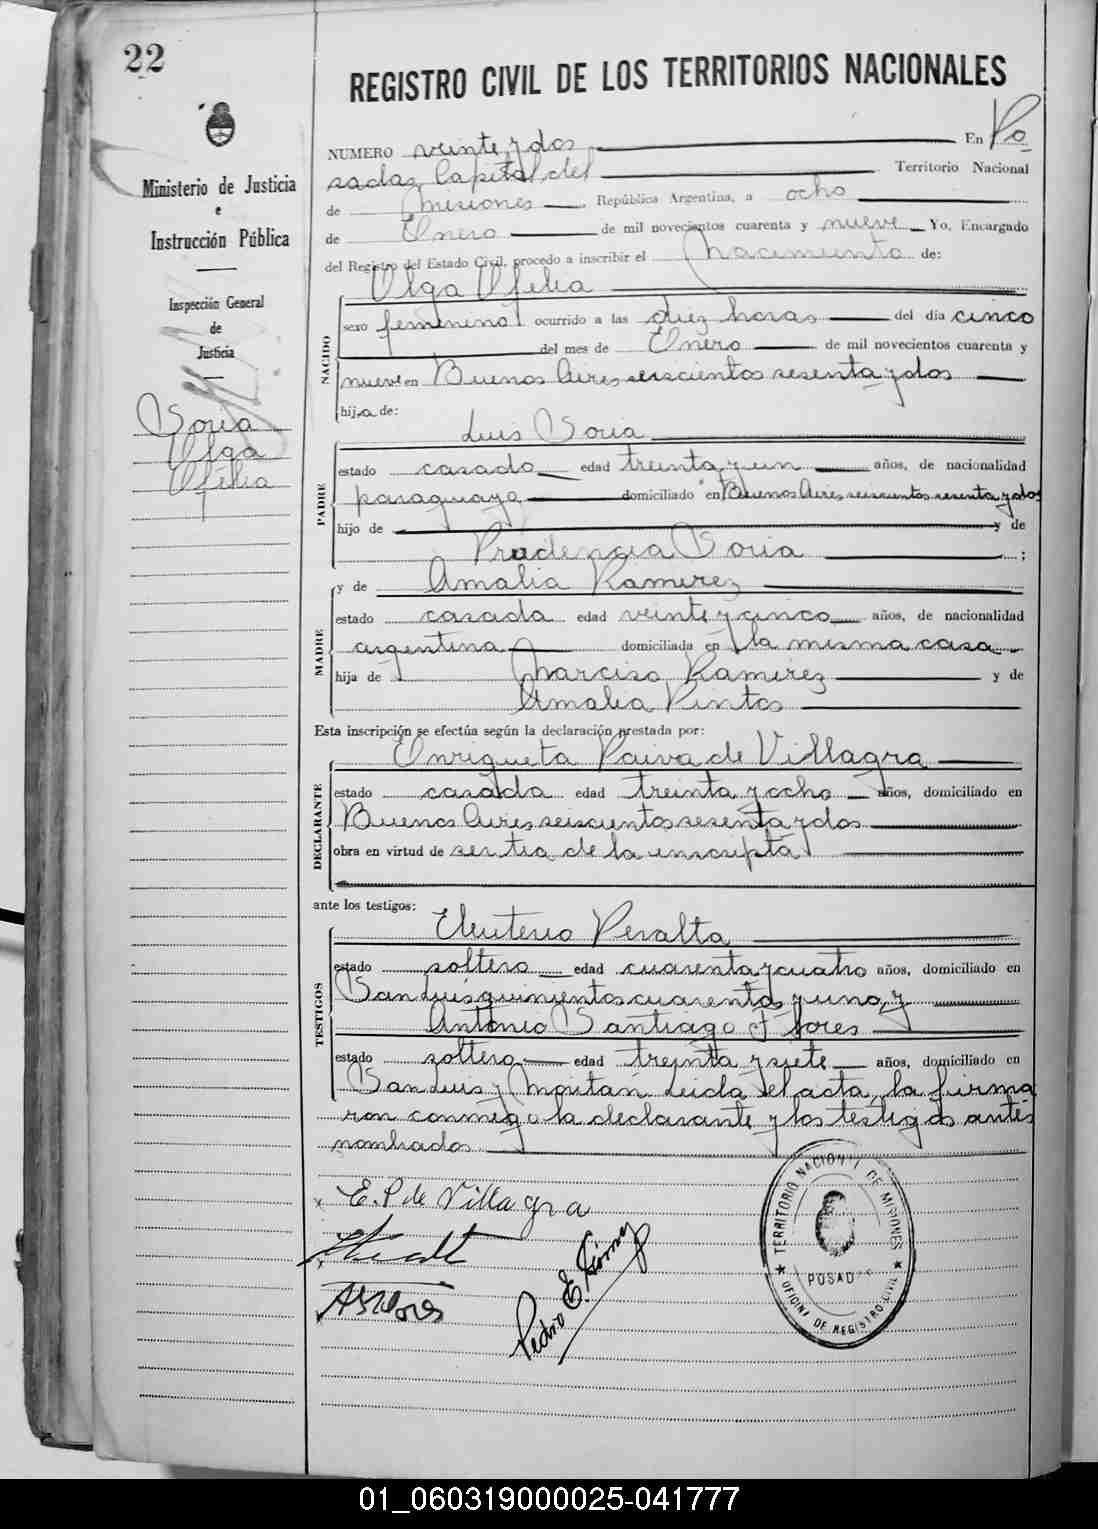 22
REGISTRO CIVIL DE LOS TERRITORIOS NACIONALES
Ministerio de Justicia
e
Instrucción Pública
Inspección General
de
Justicia
Soria
Olga
Ofelia
NUMERO veinte y dos En Po
sadas Capital del Territorio Nacional
de Misiones República Argentina, a ocho
de Enero de mil novecientos cuarenta y nueve Yo, Encargado
del Registro del Estado Civil, procedo a inscribir el Nacimiento de:
NACIDO
Olga Ofelia
sexo femenino ocurrido a las diez horas del día cinco
del mes de Enero de mil novecientos cuarenta y
nueve en Buenos Aires seiscientos sesenta y dos
hija de:
PADRE
Luis Soria
estado casado edad treinta y un años, de nacionalidad
paraguaya domiciliado en Buenos Aires seiscientos sesenta y dos
hijo de y de
Prudencia Soria ;
MADRE
y de Amalia Ramirez
estado casada edad veinte y cinco años, de nacionalidad
argentina domiciliada en la misma casa
hija de Narciso Ramirez y de
Amalia Pintos
Esta inscripción se efectúa según la declaración prestada por:
DECLARANTE
Enriqueta Paiva de Villagra
estado casada edad treinta y ocho años, domiciliado en
Buenos Aires seiscientos sesenta y dos
obra en virtud de ser tia de la inscripta
ante los testigos:
TESTIGOS
Eleuterio Peralta
estado soltero edad cuarenta y cuatro años, domiciliado en
San Luis quinientos cuarenta y uno, y
Antonio Santiago Flores
estado soltero edad treinta y siete años, domiciliado en
San Luis y Leida el acta, la firma
ron conmigo la declarante y los testigos antes
nombrados
E. P de Villagra
Pedro E.
TERRITORIO NACIONAL DE MISIONES
POSADAS
OFICINA DE REGISTRO CIVIL
01_060319000025-041777